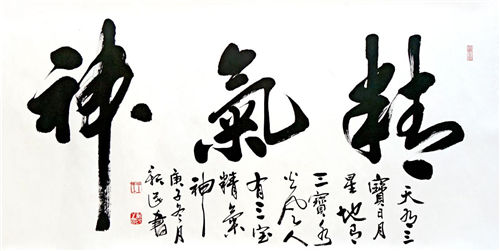 精氣神
天有三
寶日月
星地有
三寶水
火風人
有三宝
精氣
神
庚子冬月
書